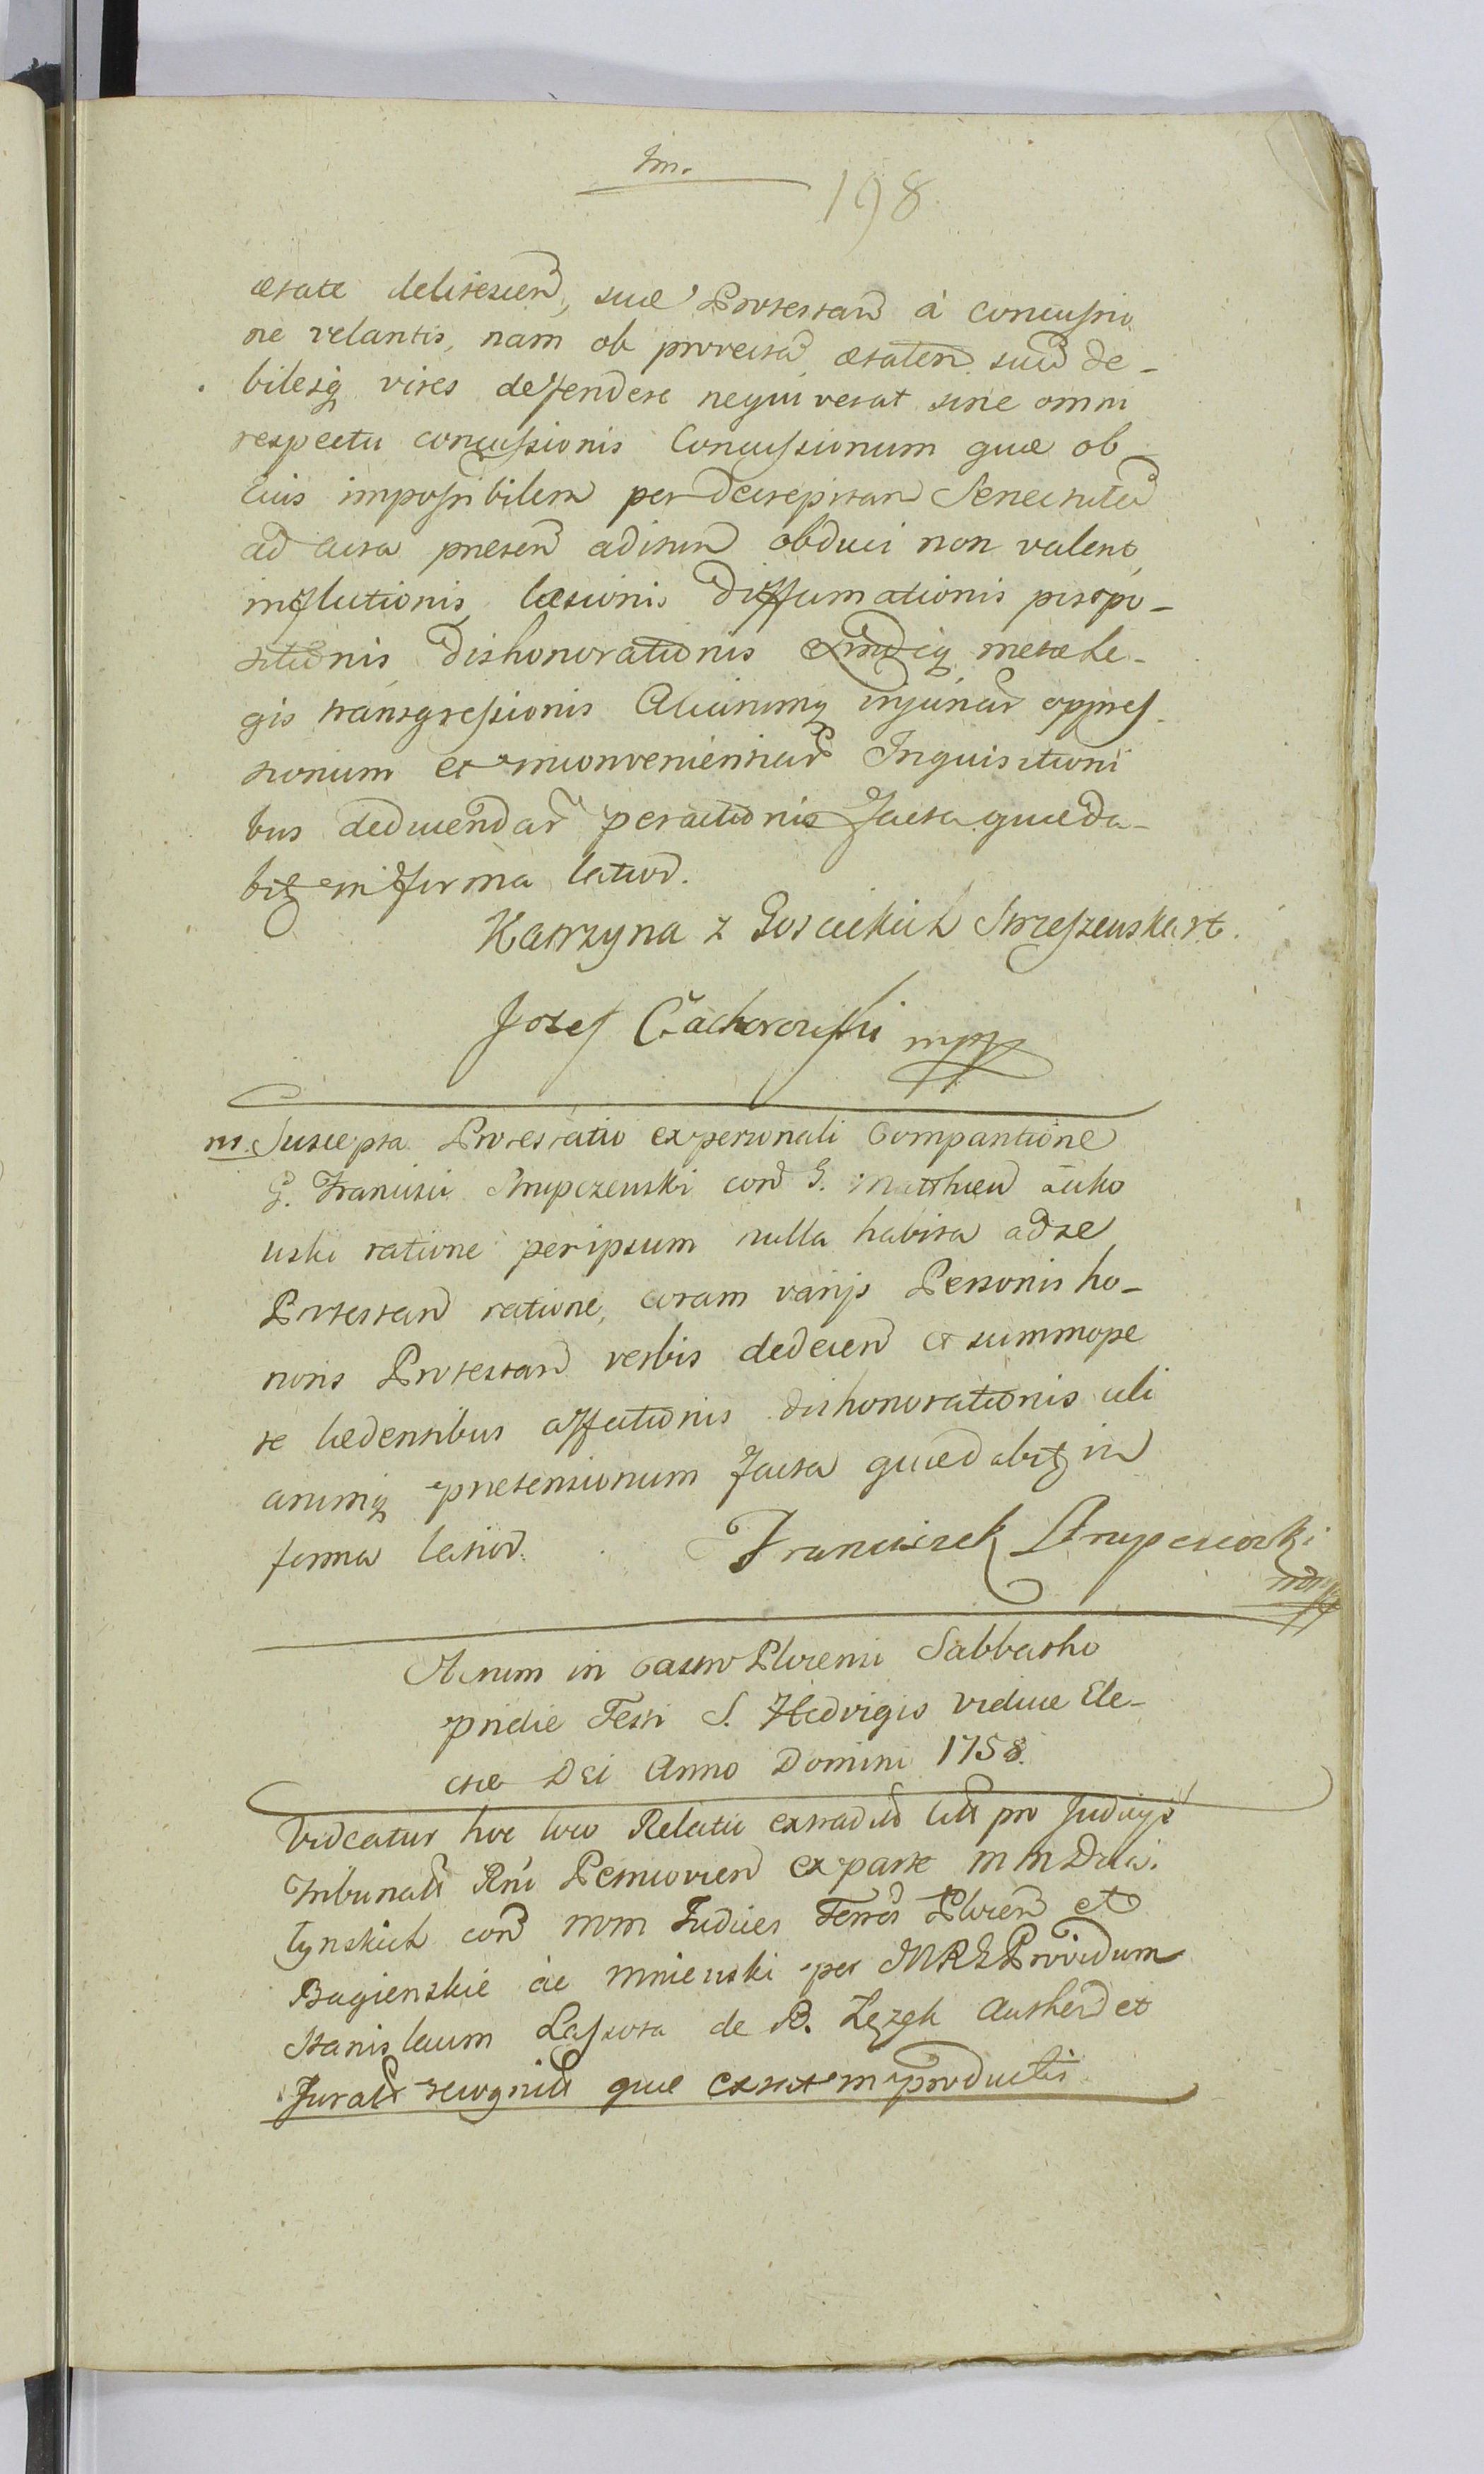 Im.
198
ætate delitescen, suæ Protestan à concussio
ne velantis, nam ob provectã ætatem suã de-
bilesq vires defendere nequiverat sine omni
respectu concussionis Concussionum quæ ob
eius impossibilem per decrepitam Senectutẽ
ad acta presen aditum obduci non valent,
inflictionis, læsionis diffamationis
sitionis, dishonorationis metæ le-
gis transgressionis Aliarumq injuriar oppres-
sionum et inconvenientiar Inquisitioni
bus deducendar peractionis facta quæ da-
bitz in forma latior.
Katrzyna z Goscickich Strzeszewska
Jozef Cachorowski mpp
m. Suscepta Protestatio ex personali Comparitione
G. Francisci Strupczewski con G. Matthieu Zuko
wski ratione per ipsum nulla habita ad se
Protestan ratione, coram varijs Personis ho-
noris Protestan verbis dedecen et summope
re lædentibus affectionis dishonorationis ali
arumq pretensionum facta quæ dabitz in
forma latior.
Franciszek Strupczewski
mpp
Actum in Castro Plocensi Sabbatho
pridie Festi S. Hedvigis Viduæ Ele-
ctæ Dei Anno Domini 1758.
Videatur hoc loco Relatio extradit litt pro Judicijs
Tribunal Rni Petricovien ex parte MM Dzia-
tynskich con MM Judices Terrs Plocen et
Bagienskie ac Mniewski per MRG Providum
Stanislaum Lassota de B. Authen et
Jurat recognit quæ extat in productis